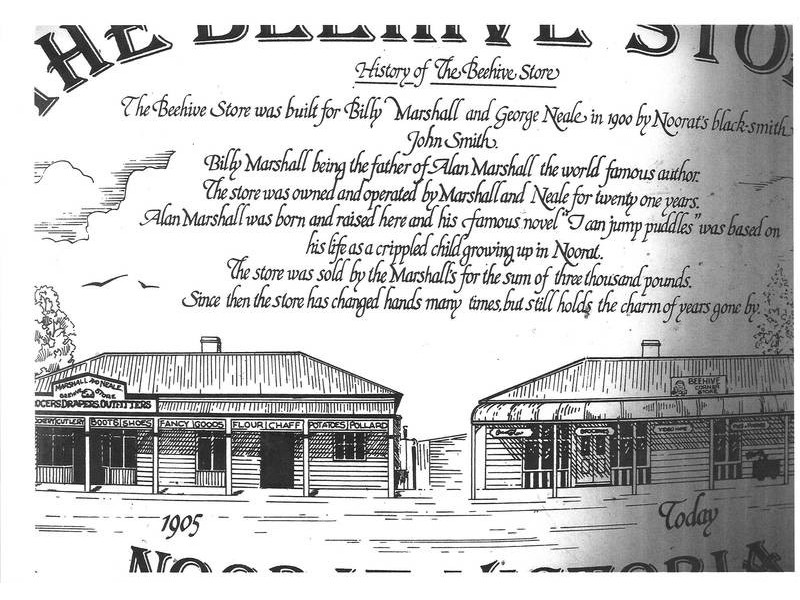 THE BEEHIVE STO
History of The Beehive Store
The Beehive Store was built for Billy Marshall and George Neale in 1900 by Noorat's black-smith
John Smith.
Billy Marshall being the father of Alan Marshall the world famous author.
The store was owned and operated by Marshall and Neale for twenty one years.
Alan Marshall was born and raised here and his famous novel "I can jump puddles" was based on
his life as a crippled child growing up in Noorat.
The store was sold by the Marshall's for the sum of three thousand pounds.
Since then the store has changed hands many times, but still holds the charm of years gone by.
MARSHALL AND NEALE
BEEHIVE STORE
OCERS DRAPERS OUTFITTERS
CUTLERY BOOTS SHOES FANCY GOODS FLOUR CHAFF POTATOES POLLARD
BEEHIVE
CORNER
STORE
1905
Today
NOORAT VICTORIA